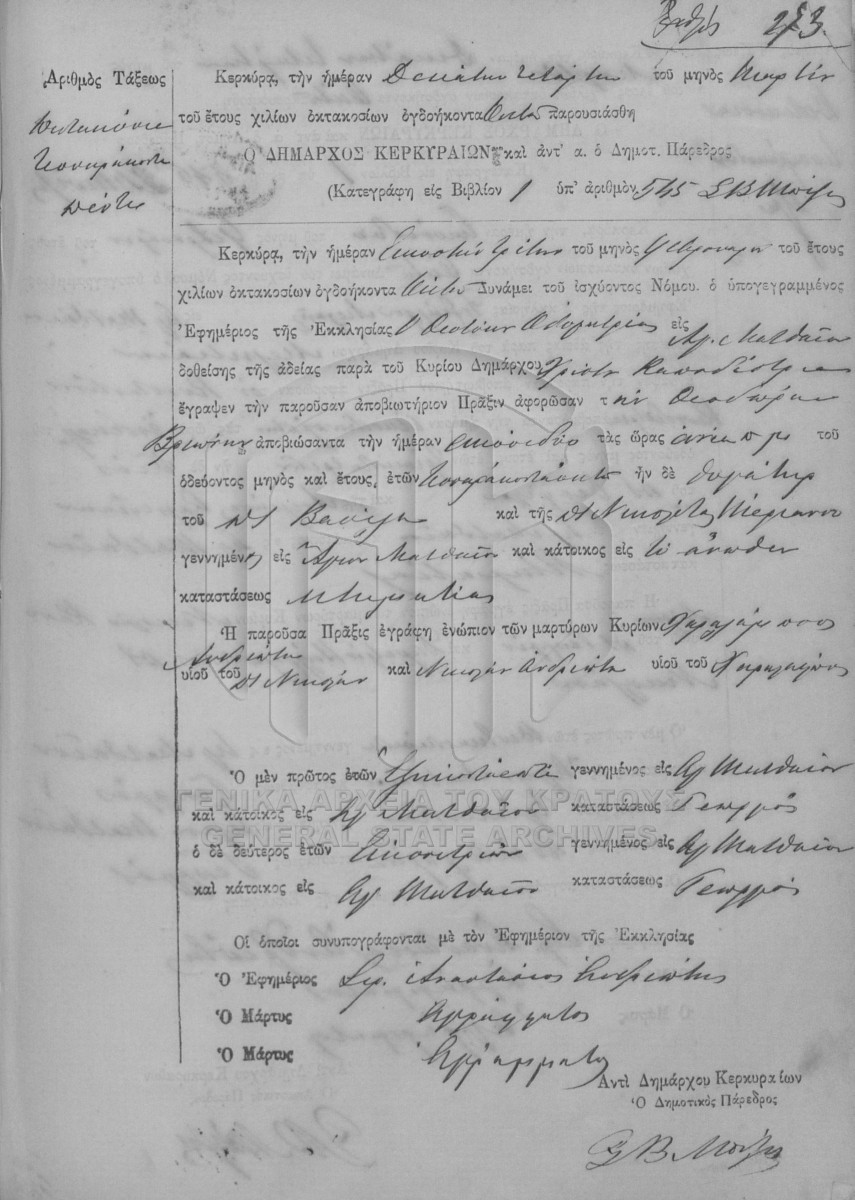 273.
Ἀριθμὸς Τάξεως
Πεντακόσια
Τεσσαράκοντα
πέντε
Κερκύρᾳ, τὴν ἡμέραν Δεκάτην τετάρτην τοῦ μηνὸς Μαρτίου
τοῦ ἔτους χιλίων ὀκτακοσίων ὀγδοήκοντα Ὀκτὼ παρουσιάσθη
Ὁ ΔΗΜΑΡΧΟΣ ΚΕΡΚΥΡΑΙΩΝ καὶ ἀντ' α. ὁ Δημοτ. Πάρεδρος
(Κατεγράφη εἰς Βιβλίον 1 ὑπ' ἀριθμὸν 545
Κερκύρᾳ, τὴν ἡμέραν Εἰκοστὴν τρίτην τοῦ μηνὸς Φεβρουαρίου τοῦ ἔτους
χιλίων ὀκτακοσίων ὀγδοήκοντα Ὀκτὼ Δυνάμει τοῦ ἰσχύοντος Νόμου. ὁ ὑπογεγραμμένος
Ἐφημέριος τῆς Ἐκκλησίας Θεοτόκου Ὁδηγητρίας εἰς Ἁγ. Ματθαῖον
δοθείσης τῆς ἀδείας παρὰ τοῦ Κυρίου Δημάρχου Χρίστου Καποδίστρια
ἔγραψεν τὴν παροῦσαν ἀποβιωτήριον Πρᾶξιν ἀφορῶσαν τ ὴν Θεοδώρα
ἀποβιώσαντα τὴν ἡμέραν εἰκοσιδύο τὰς ὥρας ἐννέα π μ τοῦ
ὁδεύοντος μηνὸς καὶ ἔτους, ἐτῶν Τεσσαράκοντα ὀκτὼ ἦν δὲ θυγάτηρ
τοῦ Βασίλη καὶ τῆς Νικολέτας
γεννημένη εἰς Ἅγιον Ματθαῖον καὶ κάτοικος εἰς τὸ ἄνωθεν
καταστάσεως
Ἡ παροῦσα Πρᾶξις ἐγράφη ἐνώπιον τῶν μαρτύρων Κυρίων Χαραλάμπους
Ἀνδριώτη
υἱοῦ τοῦ Νικολάου καὶ Νικολάου Ἀνδριώτη υἱοῦ τοῦ Χαραλάμπους
Ὁ μὲν πρῶτος ἐτῶν Ἑξηκονταεπτὰ γεννημένος εἰς Ἁγ Ματθαῖον
ΓΕΝΙΚΑ ΑΡΧΕΙΑ ΤΟΥ ΚΡΑΤΟΥΣ
καὶ κάτοικος εἰς Ἁγ Ματθαῖον καταστάσεως Γεωργός
GENERAL STATE ARCHIVES
ὁ δὲ δεύτερος ἐτῶν Εἰκοσιτριῶν γεννημένος εἰς Ἁγ Ματθαῖον
καὶ κάτοικος εἰς Ἁγ Ματθαῖον καταστάσεως Γεωργός
Οἱ ὁποῖοι συνυπογράφονται μὲ τὸν Ἐφημέριον τῆς Ἐκκλησίας
Ὁ Ἐφημέριος Ἀναστάσιος Ἀνδριώτης
Ὁ Μάρτυς Ἀγράμματος
Ὁ Μάρτυς Ἀγράμματος
Ἀντὶ Δημάρχου Κερκυραίων
Ὁ Δημοτικὸς Πάρεδρος